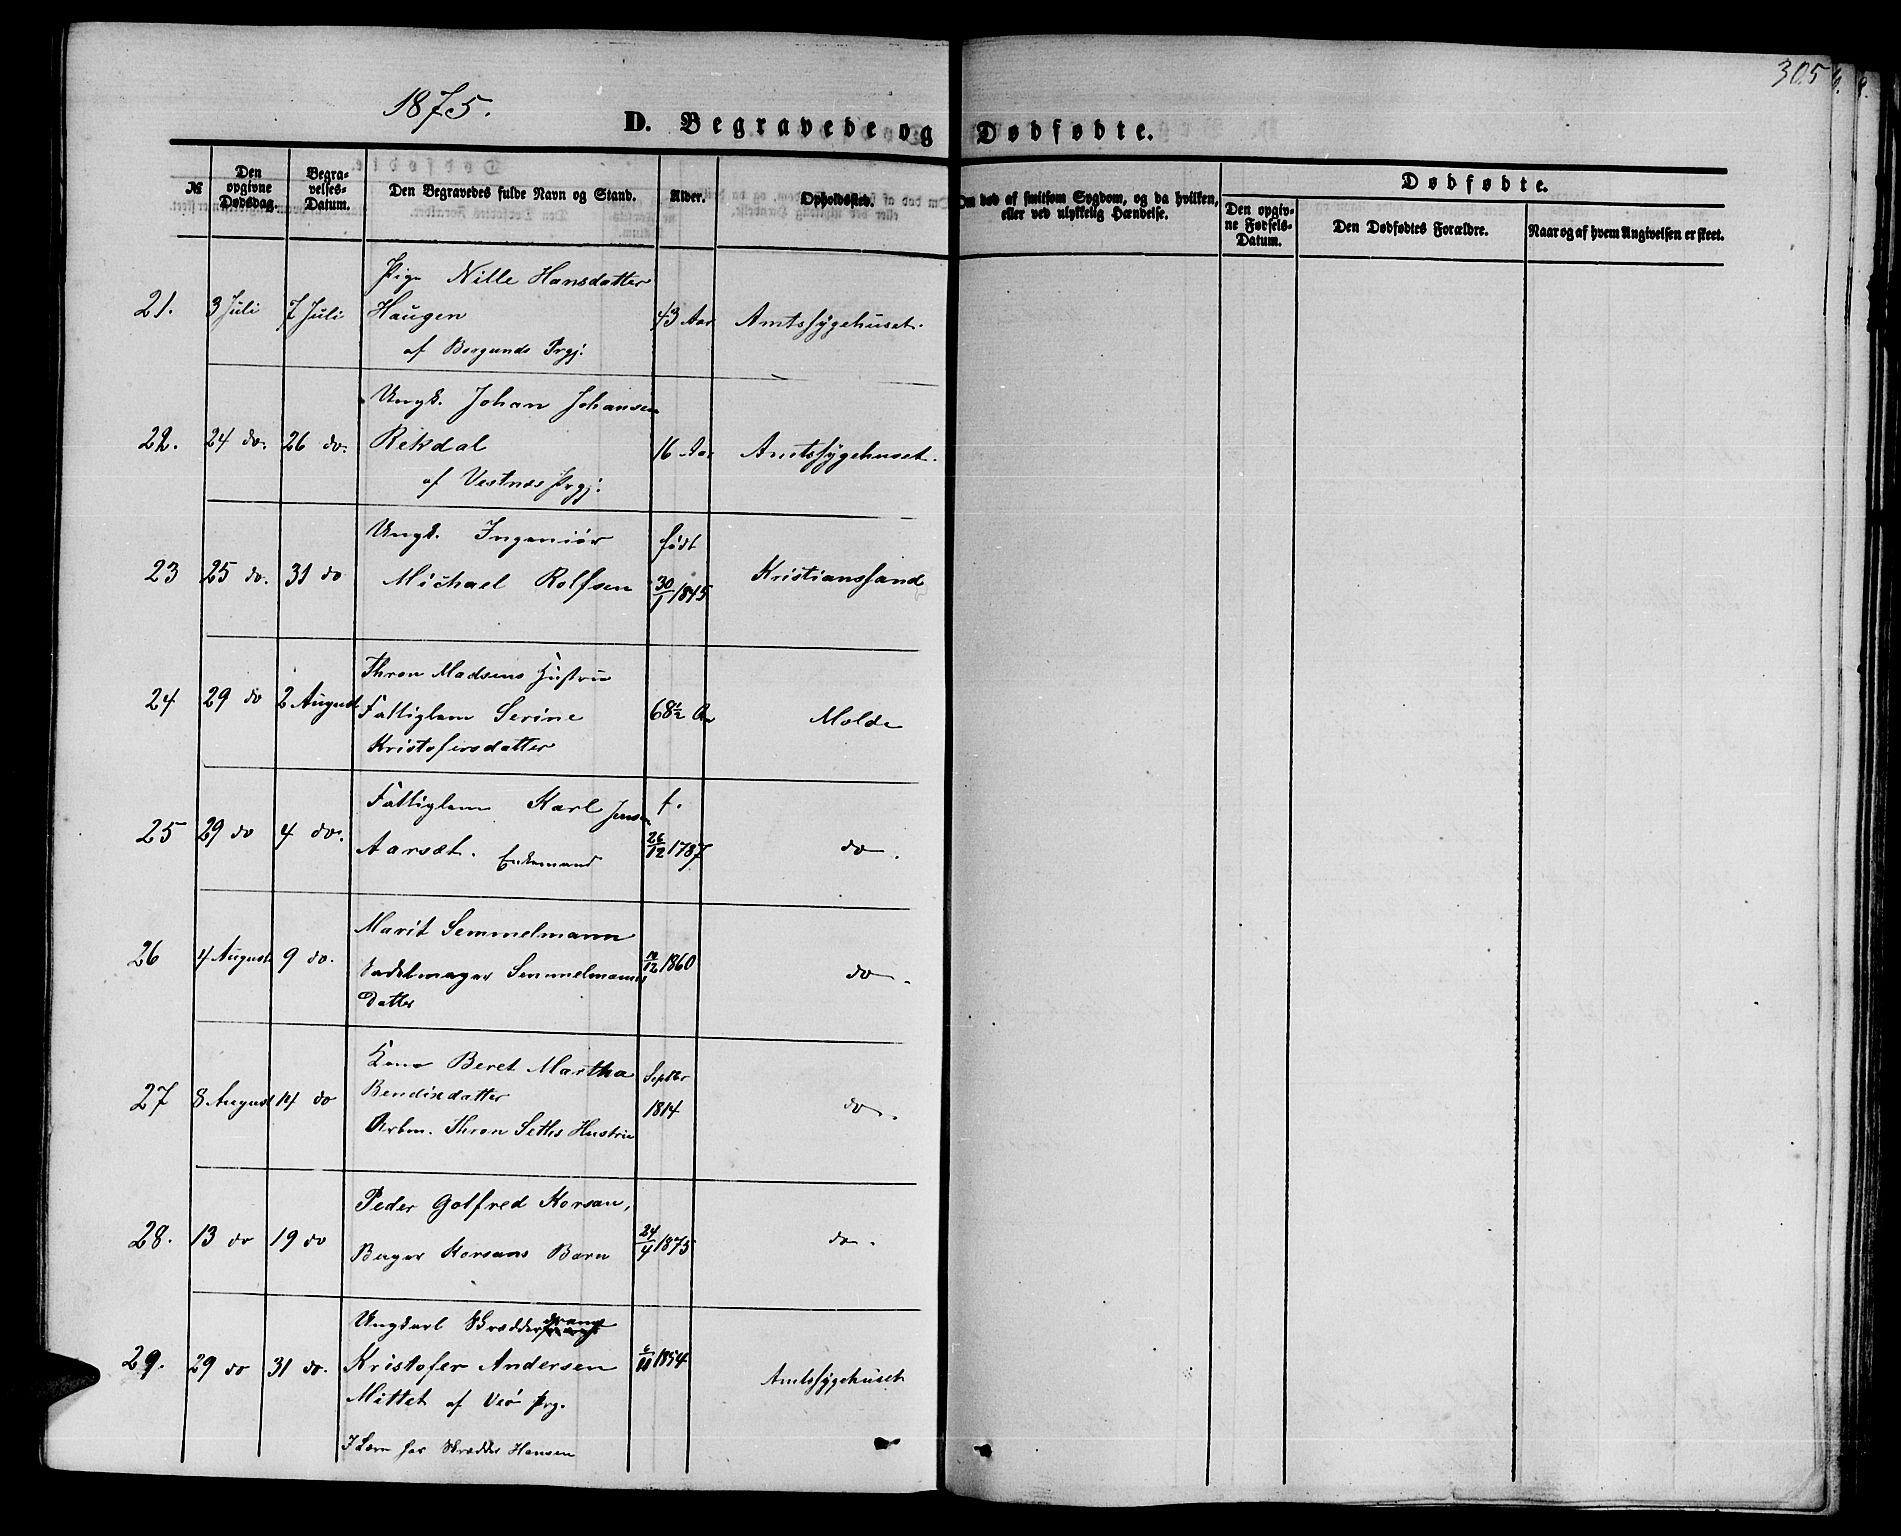 305
1875.
D. Begravede og Dødfødte.
№ Den opgivne Dødsdag. Begravelses-Datum. Den Begravedes fulde Navn og Stand. Alder. Opholdssted. Om død af smitsom Sygdom, og da hvilken, eller ved ulykkelig Hændelse.
Dødfødte.
Den opgivne Fødsels-Datum. Den Dødfødtes Forældre. Naar og af hvem Angivelsen er skeet.
Pige Nille Hansdatter
21. 3 Juli 7 Juli Haugen 43 Aar Amtssygehuset.
af Borgunds Prgj.
Ungk. Johan Johansen
22. 24 do. 26 do. Rekdal 16 Aar Amtssygehuset.
af Vestnes Prgj.
Ungk. Ingeniør født
23 25 do. 31 do Michael Rolfsen 30/1 1845 Kristianssand
Thron Madsens Hustru
24 29 do 2 August Fattiglem Serine 68½ Aar Molde
Kristofersdatter
Fattiglem Karl Jensen f.
25 29 do 4 do. Aarsæt. Enkemand 26/12 1787 do.
Marit Semmelmann
26 4 August 9 do. Sadelmager Semmelmanns /12 1860 do.
Datter
Kone Beret Martha Septbr
27 8 August 14 do Bendixdatter 1814 do.
Arbm. Thron Seths Hustru
Peder Gotfred Korsan,
28. 13 do 19 do Bager Korsans Barn 24/4 1875 do.
Ungkarl Skrædder drang
29. 29 do 31 do. Kristofer Andersen 6/11 1854 Amtssygehuset
Mittet af Veø Prg.
I Lære hos Skrædder Hansen